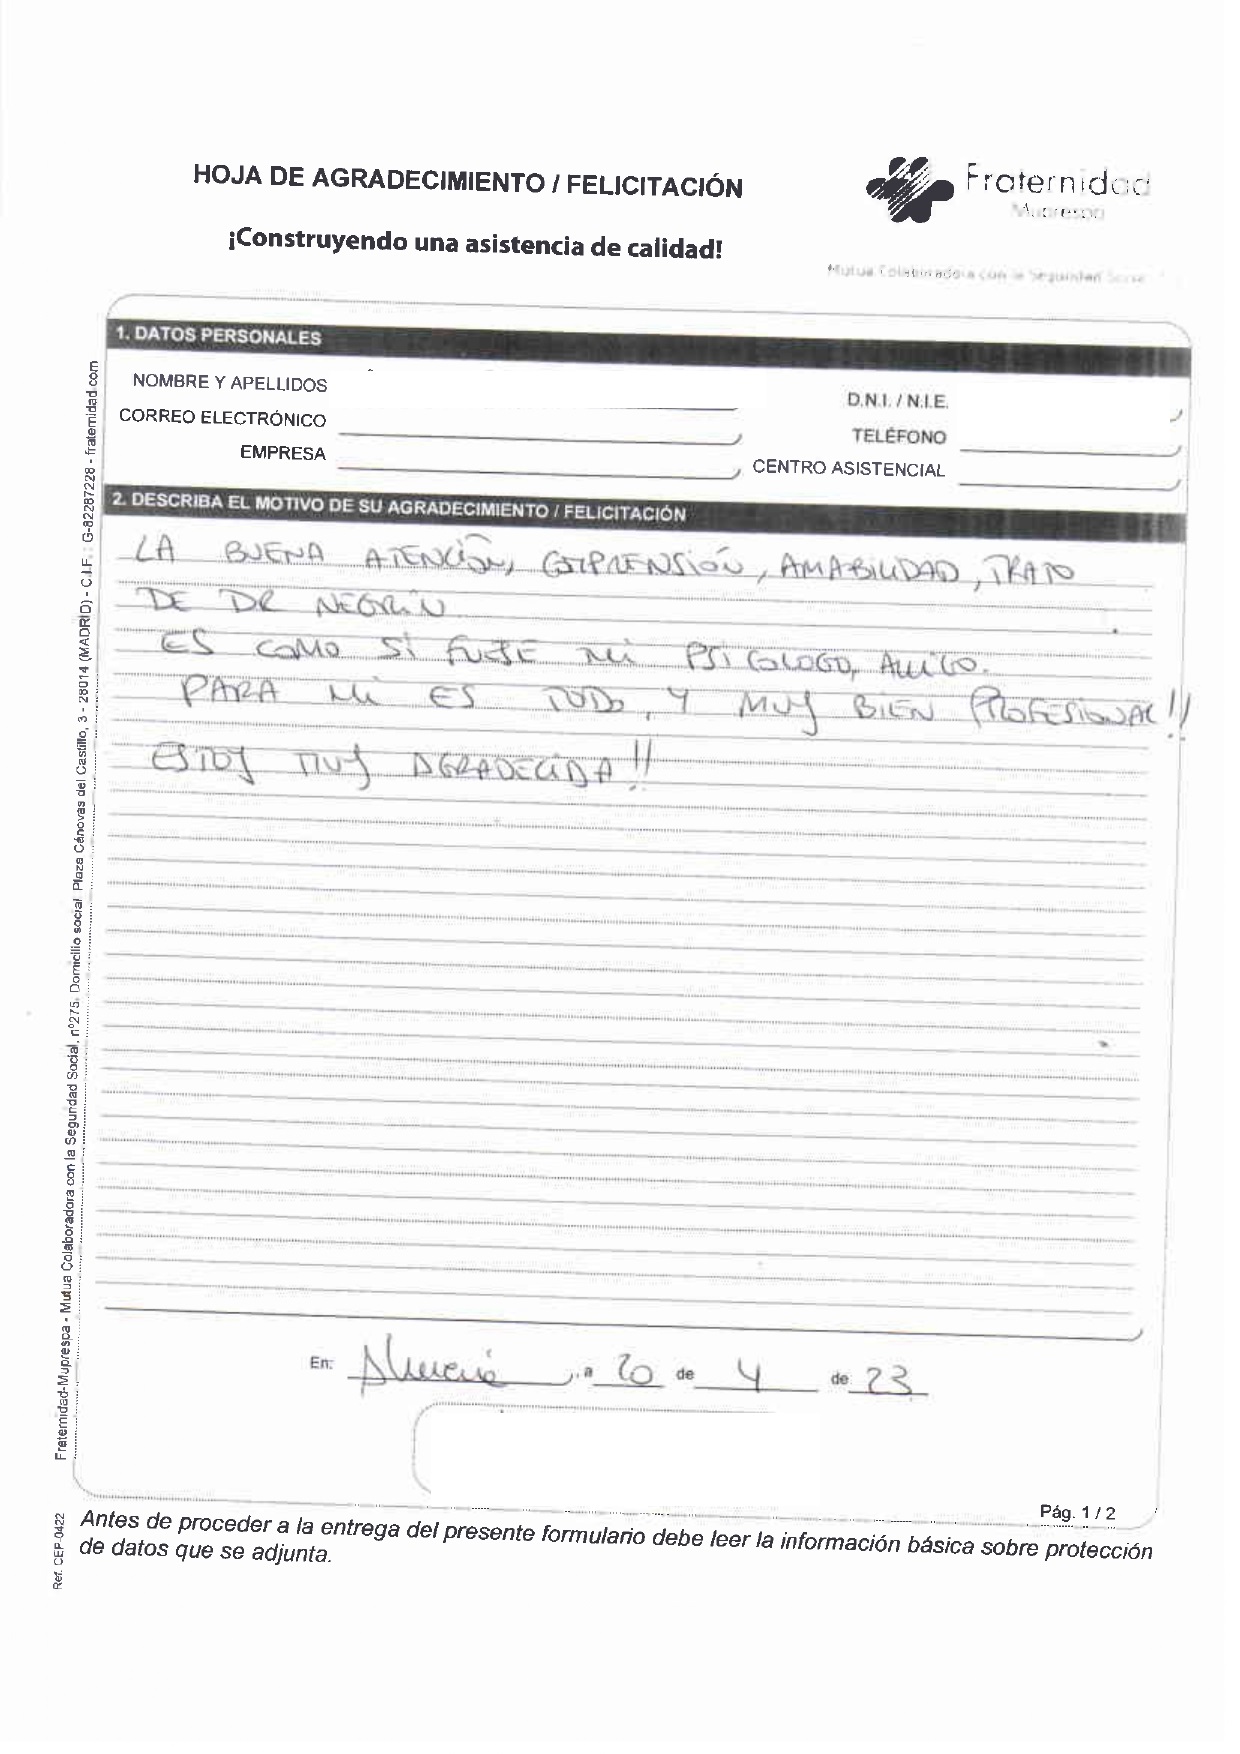 HOJA DE AGRADECIMIENTO / FELICITACIÓN
¡Construyendo una asistencia de calidad!
Fraternidad
Muprespa
Mutua Colaboradora con la Seguridad Social
1. DATOS PERSONALES
NOMBRE Y APELLIDOS
D.N.I. / N.I.E.
CORREO ELECTRÓNICO
TELÉFONO
EMPRESA
CENTRO ASISTENCIAL
2. DESCRIBA EL MOTIVO DE SU AGRADECIMIENTO / FELICITACIÓN
LA BUENA ATENCIÓN, COMPRENSIÓN, AMABILIDAD, TRATO
DE DR NEGRÍN
ES COMO SI FUSE MI PSICOLOGO, AMIGO.
PARA MI ES TODO, Y MUY BIEN PROFESIONAL!!
ESTOY MUY AGRADECIDA!!
En: Almería, a 20 de 4 de 23
Pág. 1 / 2
Antes de proceder a la entrega del presente formulario debe leer la información básica sobre protección
de datos que se adjunta.
Fraternidad-Muprespa - Mutua Colaboradora con la Seguridad Social, nº275. Domicilio social Plaza Cánovas del Castillo, 3 - 28014 (MADRID) - C.I.F.: G-82287228 - fraternidad.com
Ref. CEP-0422